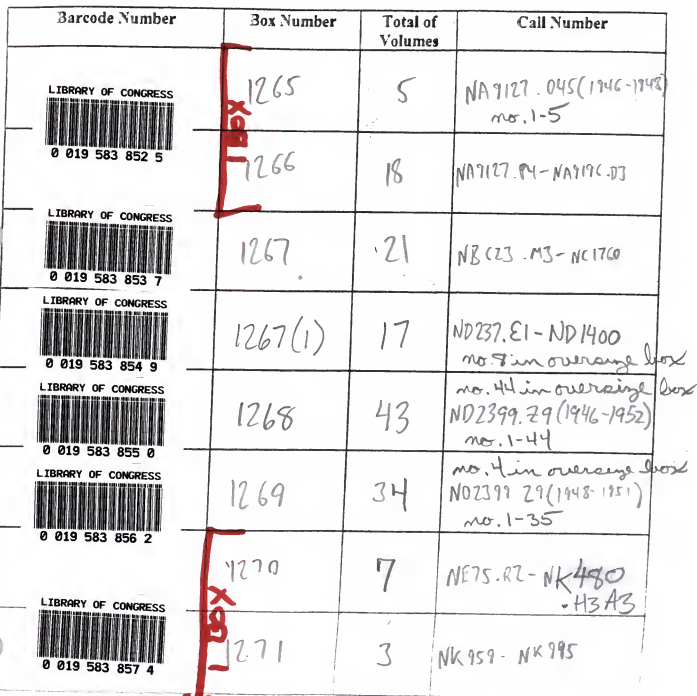 Barcode Number Box Number Total of Volumes Call Number
LIBRARY OF CONGRESS
0 019 583 852 5
1 BOX
1265 5 NA9127.O45(1946-1948)
no. 1-5
1266 18 NA9127.P4-NA9196.D3
LIBRARY OF CONGRESS
0 019 583 853 7
1267 21 NBC23.M3-NC1760
LIBRARY OF CONGRESS
0 019 583 854 9
1267(1) 17 ND237.E1-ND1400
no. 8 in oversize box
LIBRARY OF CONGRESS
0 019 583 855 0
1268 43 no. 44 in oversize box
ND2399.Z9(1946-1952)
no. 1-44
LIBRARY OF CONGRESS
0 019 583 856 2
1269 34 no. 4 in oversize box
ND2399 Z9(1948-1951)
no. 1-35
1 BOX
1270 7 NE75.R2-NK480
.H3A3
LIBRARY OF CONGRESS
0 019 583 857 4
1271 3 NK959-NK995